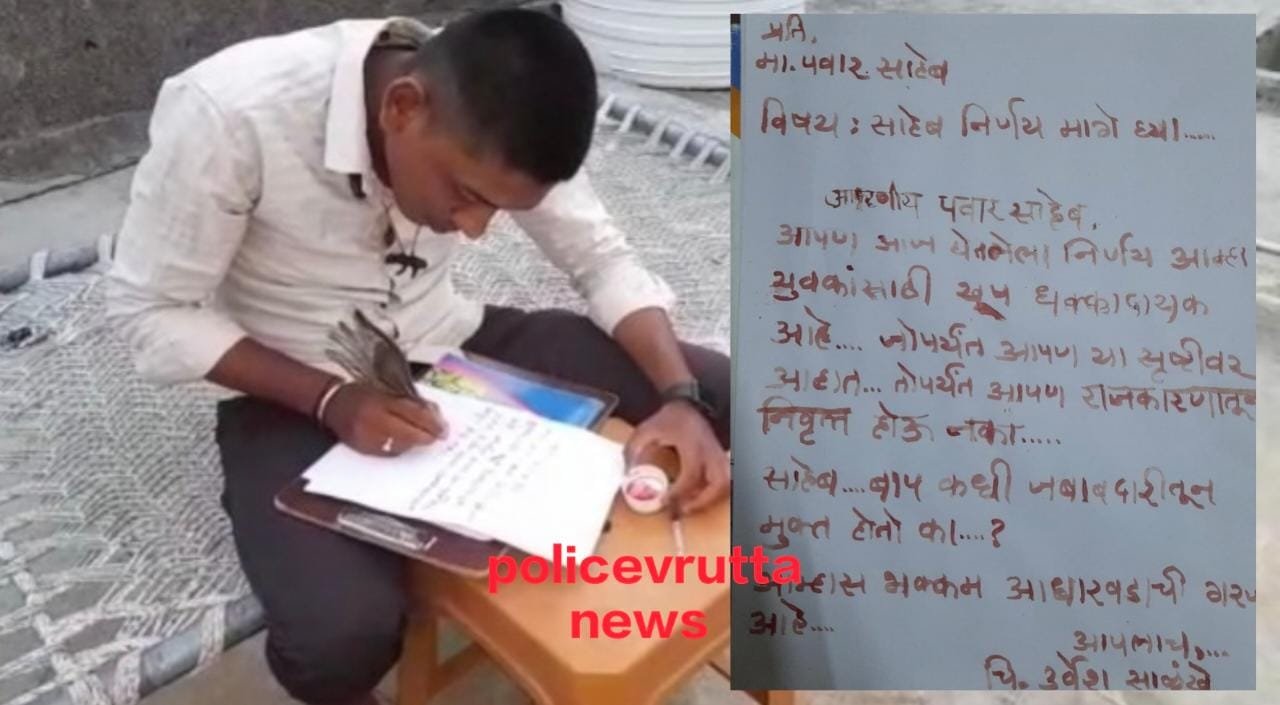 प्रति,
मा. पवार साहेब
विषय : साहेब निर्णय मागे घ्या.....
आदरणीय पवार साहेब,
आपण आज घेतलेला निर्णय आम्हा
युवकांसाठी खूप धक्कादायक
आहे.... जोपर्यंत आपण या सृष्टीवर
आहात... तोपर्यंत आपण राजकारणातून
निवृत्त होऊ नका.....
साहेब....बाप कधी जबाबदारीतून
मुक्त होतो का....?
आम्हास भक्कम आधारवडाची गरज
आहे....
आपलाच,....
चि. उर्वेश साळुंखे
policevrutta
news